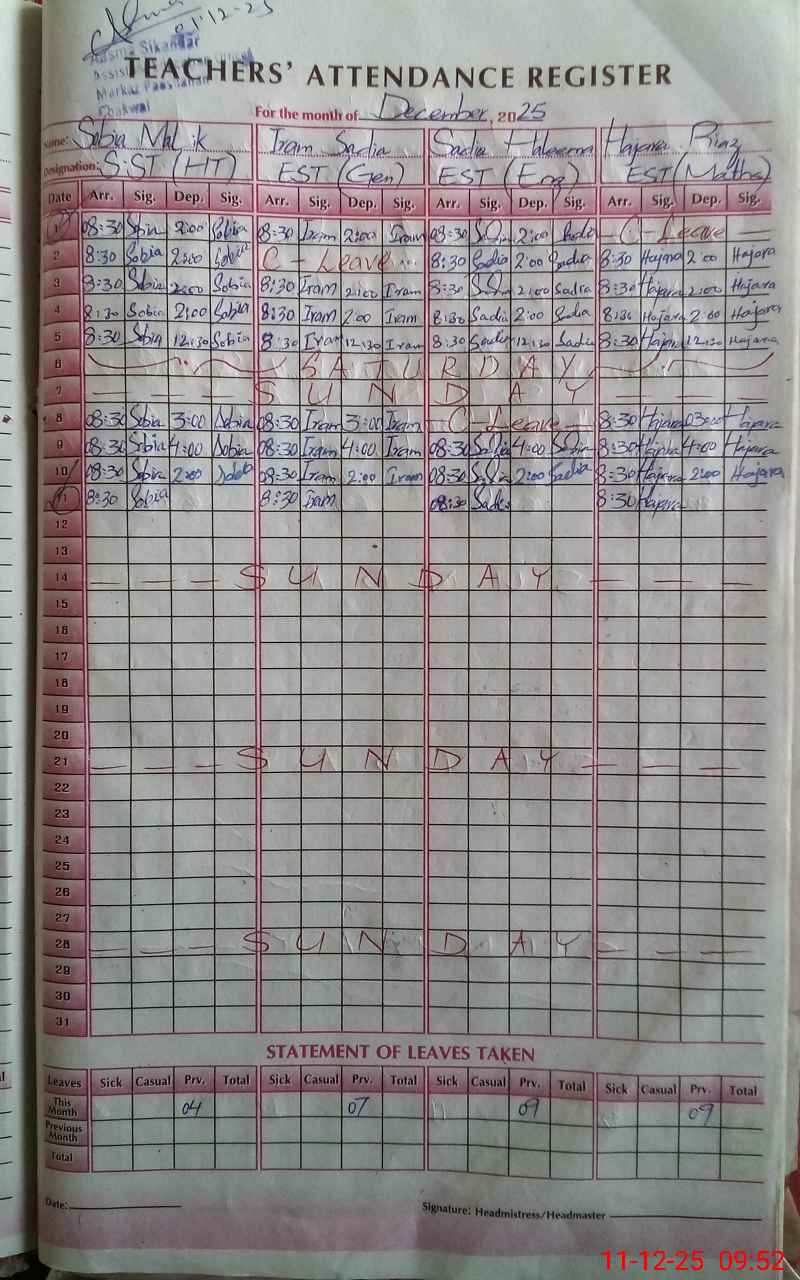 01-12-25
Aasma Sikandar
Markaz
Chakwal
TEACHERS' ATTENDANCE REGISTER
For the month of December, 2025
Name: Sobia Malik Iram Sadia Sadia Haleema Hajara Riaz
Designation: S.ST (HT) EST (Gen) EST (Eng) EST (Maths)
Date Arr. Sig. Dep. Sig. Arr. Sig. Dep. Sig. Arr. Sig. Dep. Sig. Arr. Sig. Dep. Sig.
1 08:30 Sobia 2:00 Sobia 08:30 Iram 2:00 Iram 08:30 Sadia 2:00 Sadia - C - Leave -
2 8:30 Sobia 2:00 Sobia C - Leave 8:30 Sadia 2:00 Sadia 8:30 Hajara 2:00 Hajara
3 8:30 Sobia 2:00 Sobia 8:30 Iram 2:00 Iram 8:30 Sadia 2:00 Sadia 8:30 Hajara 2:00 Hajara
4 8:30 Sobia 2:00 Sobia 8:30 Iram 2:00 Iram 8:30 Sadia 2:00 Sadia 8:30 Hajara 2:00 Hajara
5 8:30 Sobia 12:30 Sobia 8:30 Iram 12:30 Iram 8:30 Sadia 12:30 Sadia 8:30 Hajara 12:30 Hajara
6 SATURDAY
7 - - - SUNDAY - - -
8 08:30 Sobia 3:00 Sobia 08:30 Iram 3:00 Iram - C - Leave - 8:30 Hajara 03:00 Hajara
9 08:30 Sobia 4:00 Sobia 08:30 Iram 4:00 Iram 08:30 Sadia 4:00 Sadia 8:30 Hajara 4:00 Hajara
10 08:30 Sobia 2:00 Sobia 08:30 Iram 2:00 Iram 08:30 Sadia 2:00 Sadia 8:30 Hajara 2:00 Hajara
11 8:30 Sobia 8:30 Iram 08:30 Sadia 8:30 Hajara
12
13
14 - - - SUNDAY - - -
15
16
17
18
19
20
21 - - - SUNDAY - - -
22
23
24
25
26
27
28 - - - SUNDAY - - -
29
30
31
STATEMENT OF LEAVES TAKEN
Leaves Sick Casual Prv. Total Sick Casual Prv. Total Sick Casual Prv. Total Sick Casual Prv. Total
This Month 04 07 09 09
Previous Month
Total
Date: Signature: Headmistress/Headmaster
11-12-25 09:52